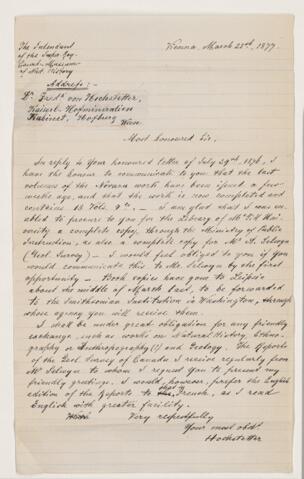 The Intendant
of the Impl. Roy.
Court-Museum
of Nat. History
Vienna, March 28th, 1877.
Address:-
Dr. Ferd. von Hochstetter,
Kaiserl. Hofmineralien
Kabinet, Hofburg
Wien
Most honoured Sir,
In reply to Your honoured letter of July 29th, 1876, I
have the honour to communicate to you that the last
volumes of the Novara work have been issued a few
weeks ago, and that the work is now completed and
contains 18 Vols. 4to. - I am glad that I was en-
abled to procure to you for the Library of McGill Uni-
versity a complete copy, through the Ministry of Public
Instruction, as also a complete copy for Mr. A. Selwyn
(Geol. Survey). - I would feel obliged to you if you
would communicate this to Mr. Selwyn by the first
opportunity - Both copies have gone to Leipsic
about the middle of March last, to be forwarded
to the Smithsonian Institution in Washington, through
whose agency you will receive them.
I shall be under great obligation for any friendly
exchange, such as works on Natural History, Ethno-
graphy or Anthropography (!) and Geology. The Reports
of the Geol. Survey of Canada I receive regularly from
Mr. Selwyn to whom I request You to present my
friendly greetings. I would, however, prefer the English
edition of the Reports to that in French, as I read
English with greater facility.
Very respectfully
Your most obdt.
Hochstetter